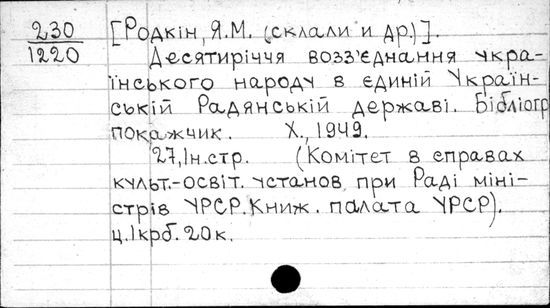 230 [Родкін, Я.М. (склали и др.)].
1220 Десятиріччя возз'єднання укра-
їнського народу в єдиній Україн-
ській Радянській державі. Бібліогр
покажчик. Х., 1949.
27, Iн.стр. (Комітет в справах
культ.-освіт. установ при Раді міні-
стрів УРСР. Книж. палата УРСР).
ц. 1крб. 20к.